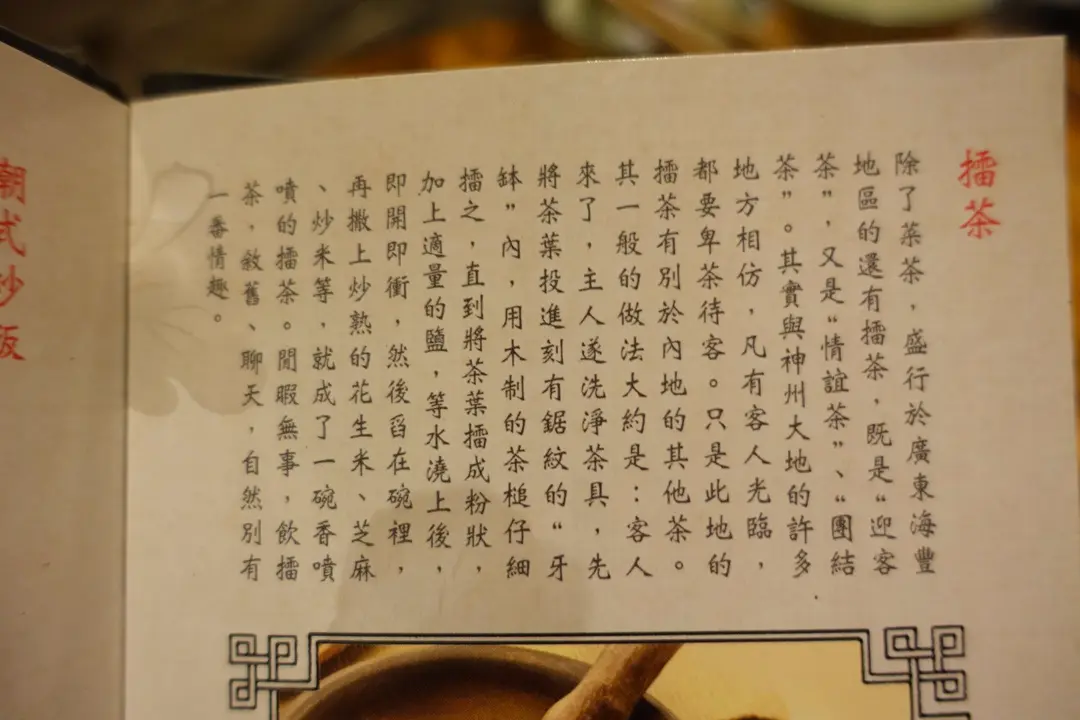 擂茶
除了菜茶，盛行於廣東海豐
地區的還有擂茶，既是“迎客
茶”，又是“情誼茶”、“團結
茶”。其實與神州大地的許多
地方相仿，凡有客人光臨，
都要卑茶待客。只是此地的
擂茶有別於內地的其他茶。
其一般的做法大約是：客人
來了，主人遂洗淨茶具，先
將茶葉投進刻有鋸紋的“牙
缽”內，用木制的茶槌仔細
擂之，直到將茶葉擂成粉狀，
加上適量的鹽，等水澆上後，
即開即衝，然後舀在碗裡，
再撒上炒熟的花生米、芝麻
、炒米等，就成了一碗香噴
噴的擂茶。閒暇無事，飲擂
茶，敘舊、聊天，自然別有
一番情趣。
潮式炒飯